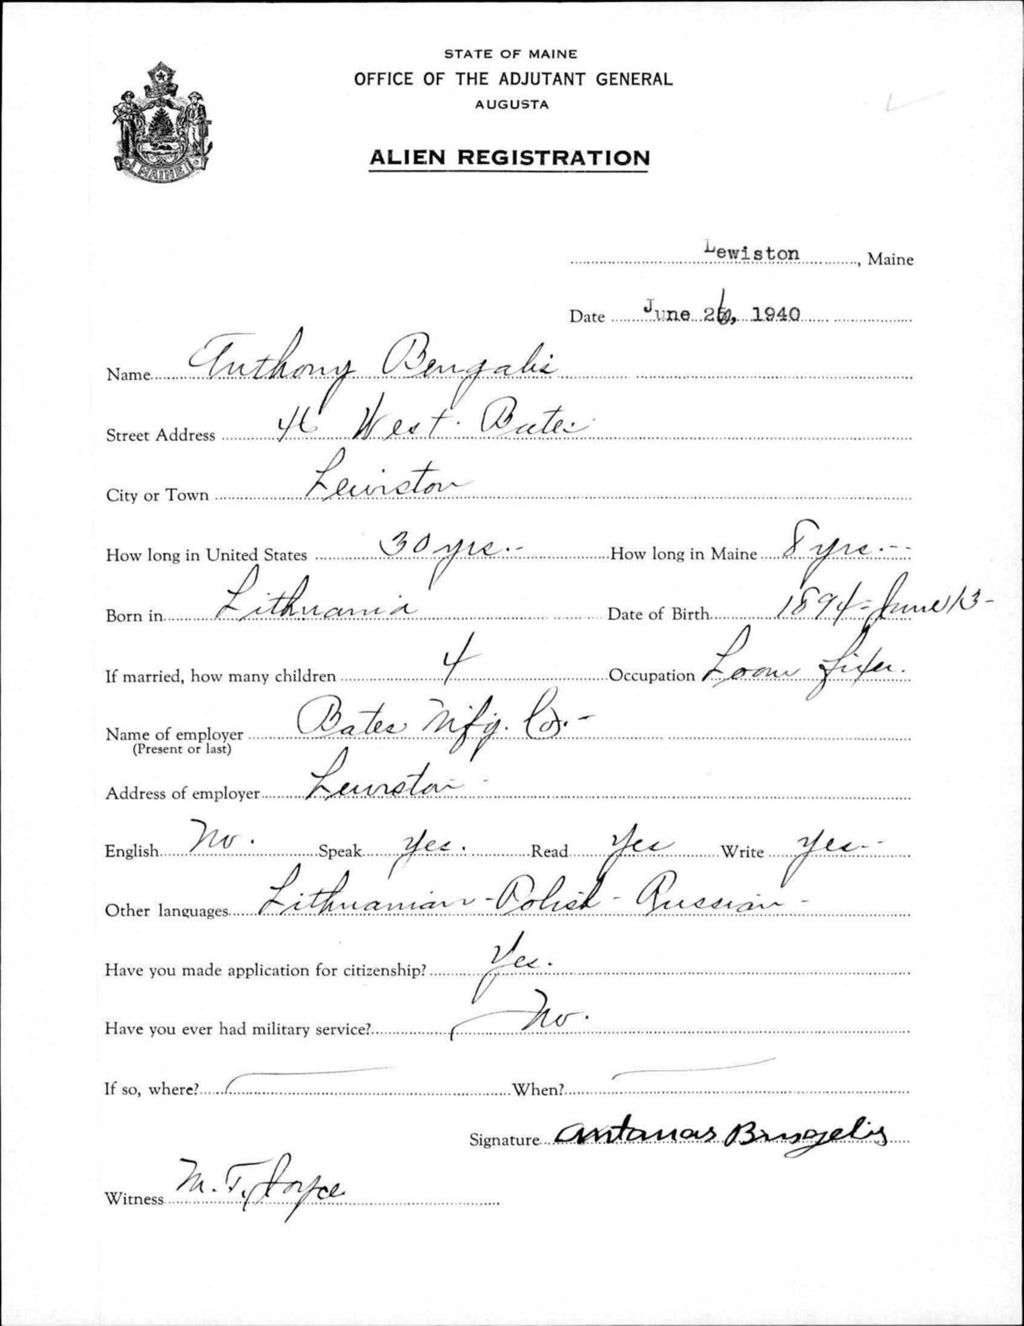 STATE OF MAINE
OFFICE OF THE ADJUTANT GENERAL
AUGUSTA
ALIEN REGISTRATION
MAINE
Lewiston, Maine
Date June 26, 1940
Name Anthony Bengalis
Street Address 46 West Bates
City or Town Lewiston
How long in United States 30 yrs. How long in Maine 8 yrs.
Born in Lithuania Date of Birth 1894 - June 13 -
If married, how many children 4 Occupation Loom fixer.
Name of employer Bates Mfg. Co. -
(Present or last)
Address of employer Lewiston -
English No. Speak Yes. Read Yes Write Yes -
Other languages Lithuanian - Polish - Russian -
Have you made application for citizenship? Yes.
Have you ever had military service? No.
If so, where? When?
Signature Antanas
Witness M. T. Joyce